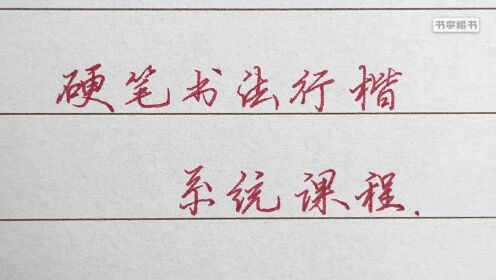 书享楷书
硬笔书法行楷
系统课程.